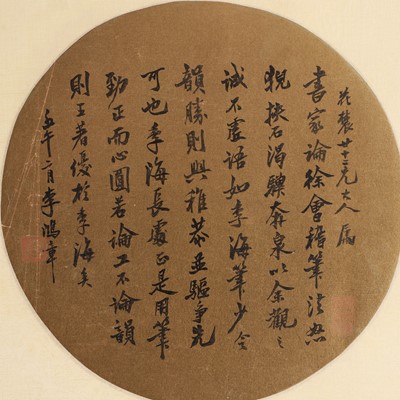 花農廿二兄大人屬
書家論徐會稽筆法怒
猊抉石渴驥奔泉以余觀之
誠不虛語如季海筆少令
韻勝則與稚恭並驅爭先
可也季海長處正是用筆
勁正而心圓若論工不論韻
則王著優於季海矣
午 月李鴻章